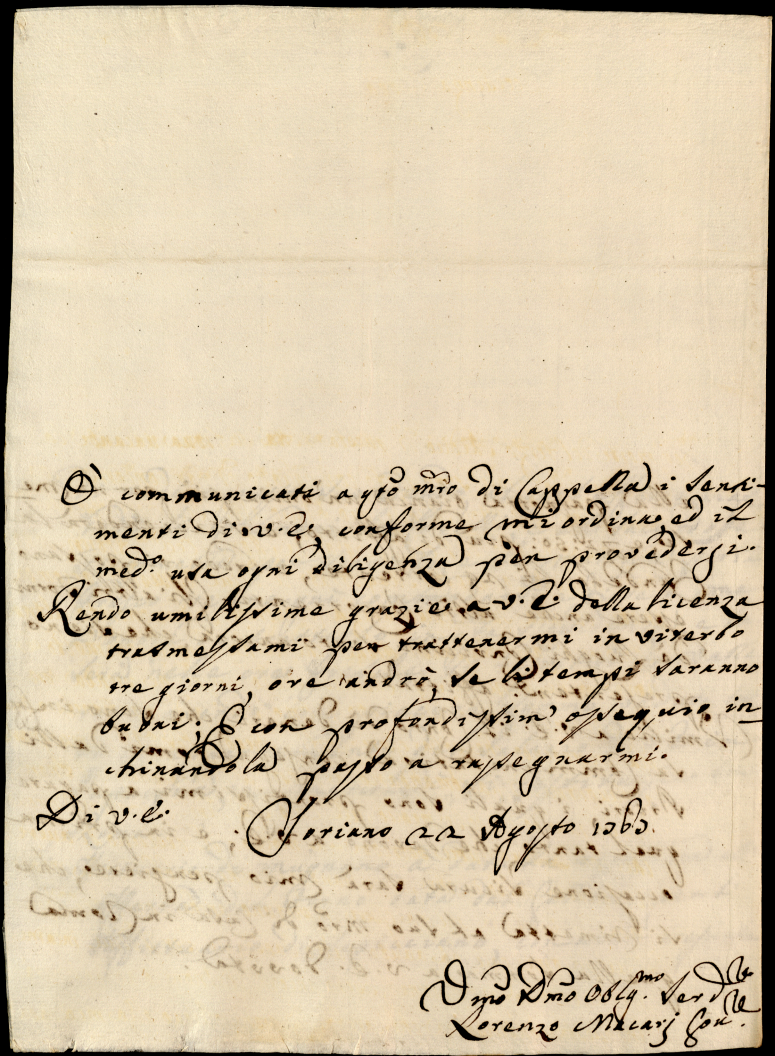 O' communicati a qsto mro di Cappella i senti-
menti di V. E., conforme mi ordina, ed il
medo. usa ogni diligenza per provedersi.
Rendo umilissime grazie a V. E. della licenza
trasmessami per trattenermi in Viterbo
tre giorni, ove andrò, se li tempi saranno
buoni; E con profondissimo ossequio in-
chinandola passo a rassegnarmi.
Di V. E. Soriano 22 Agosto 1763
Dmo Dmo Oblgmo. Serdre
Lorenzo Macarj